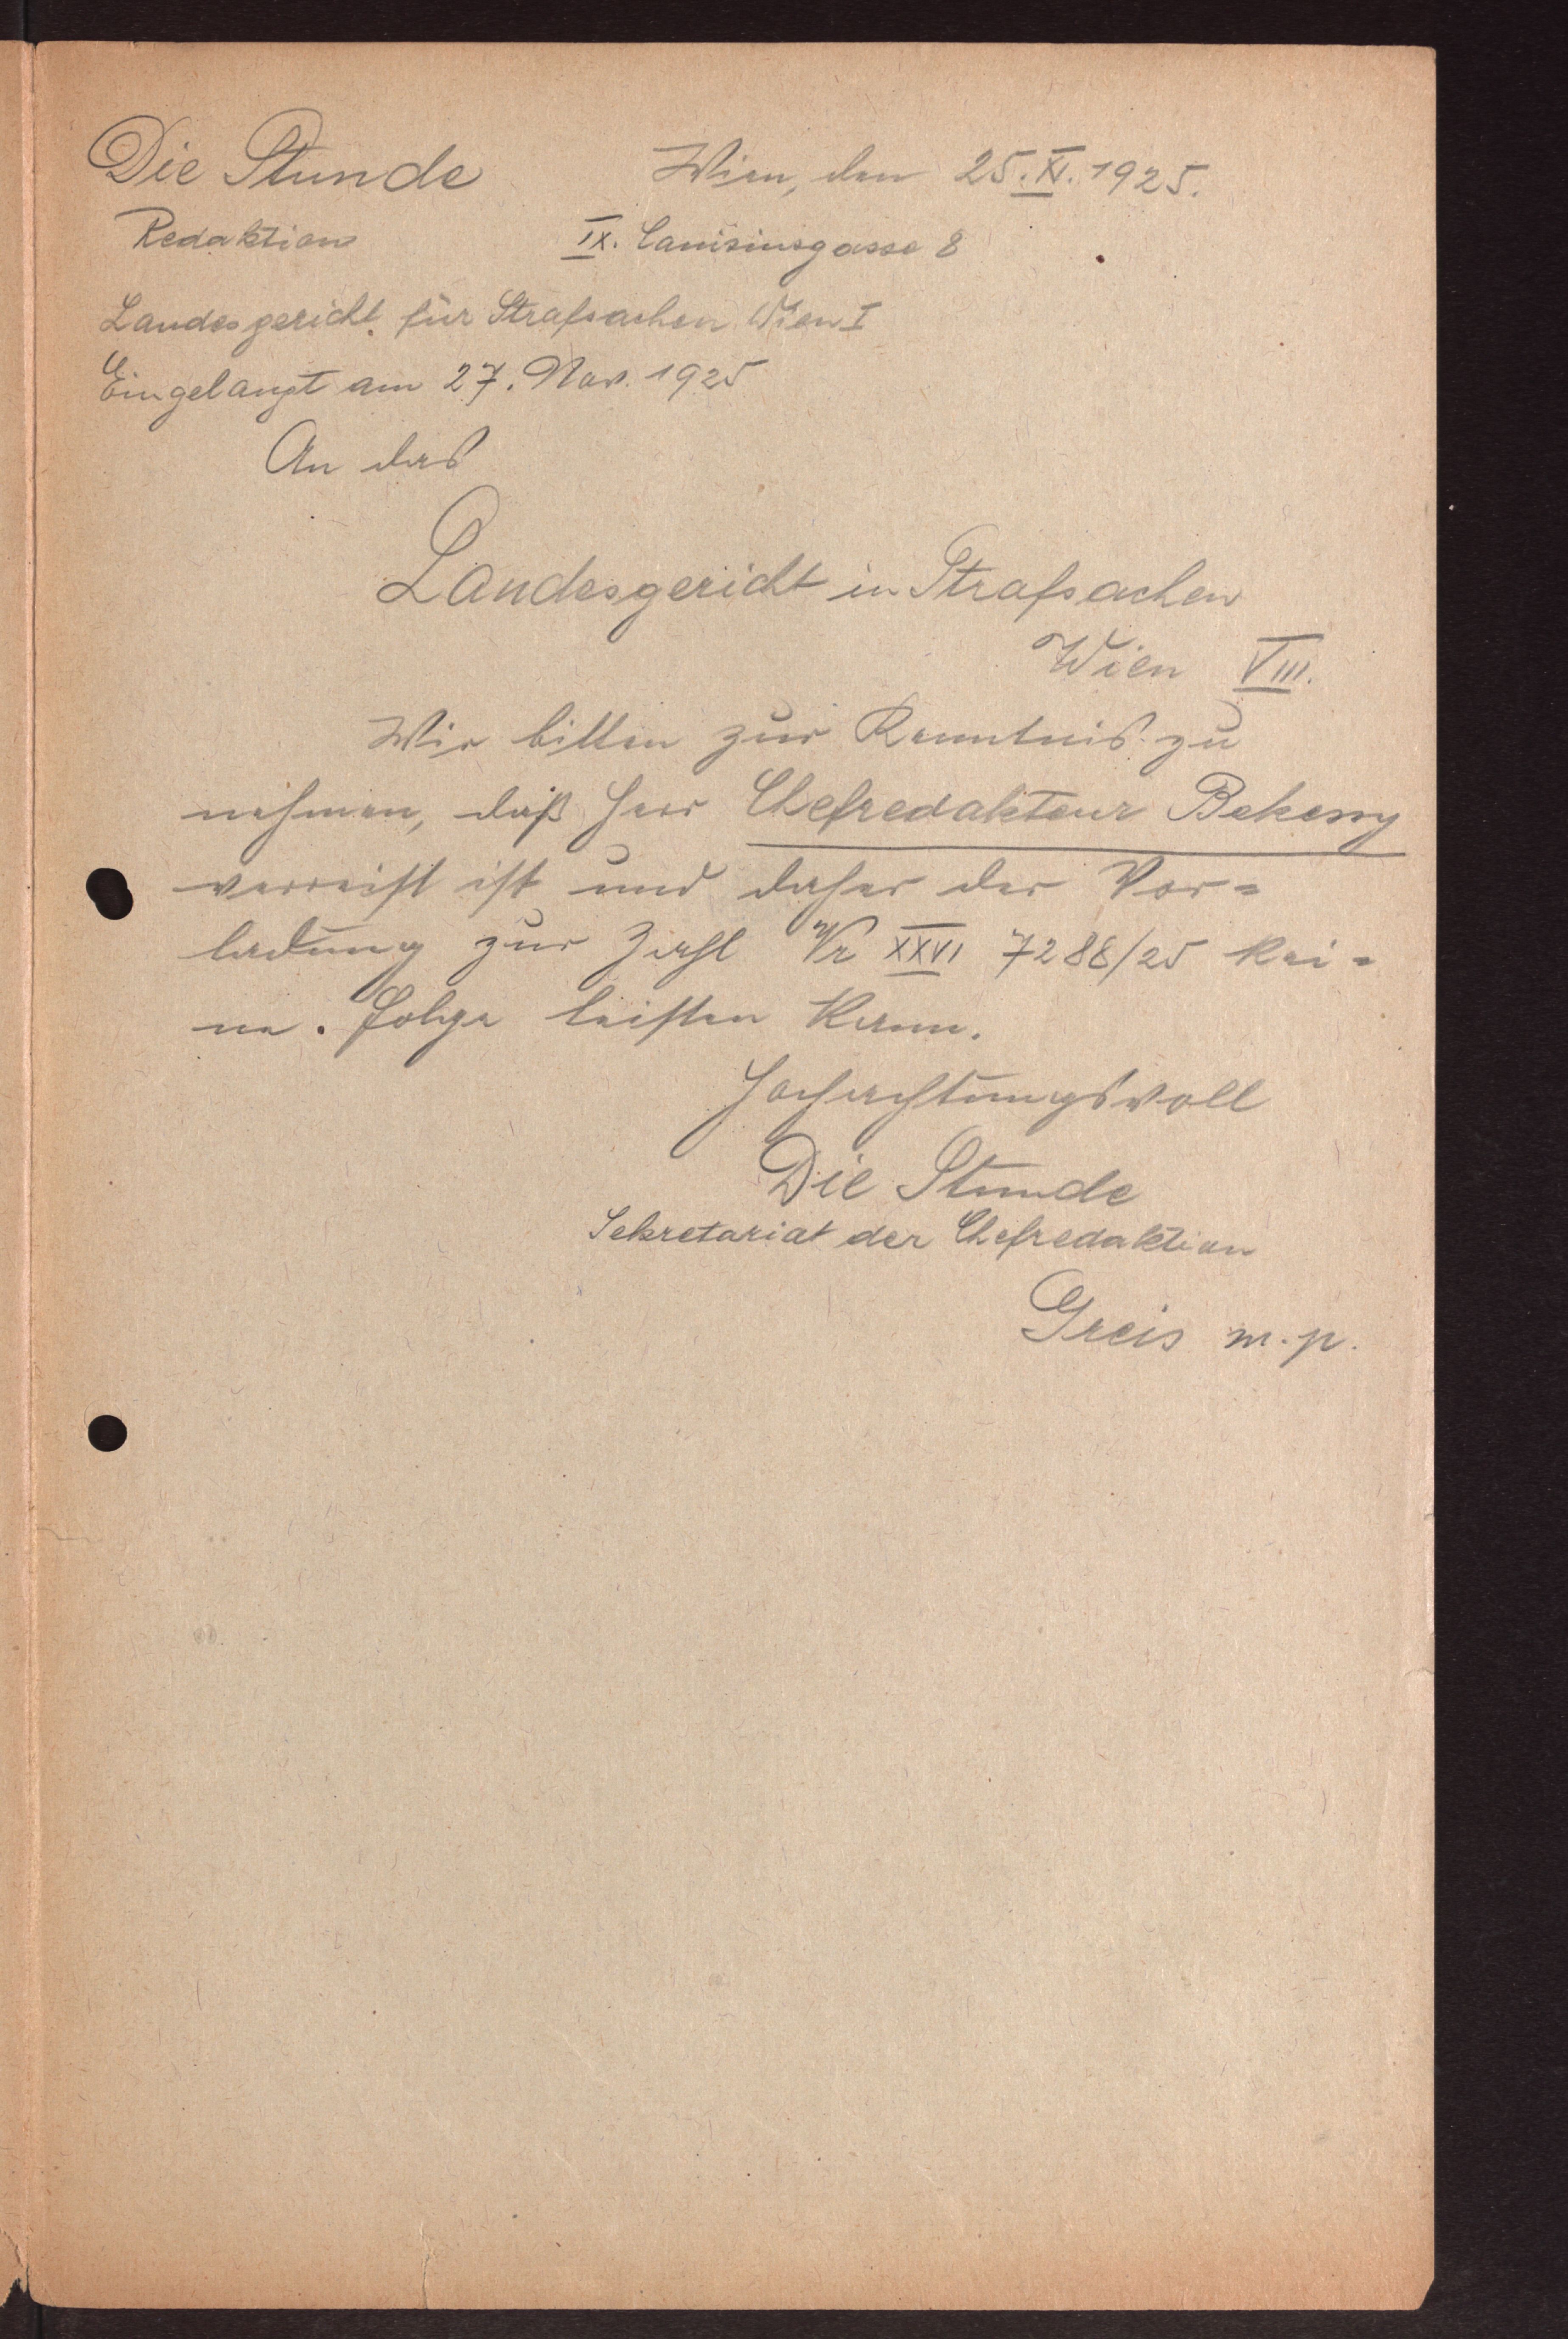 Die Stunde Wien, den 25. XI. 1925.
Redaktion IX. Canisiusgasse 8
Landesgericht für Strafsachen Wien I
Eingelangt am 27. Nov. 1925
An das
Landesgericht in Strafsachen
Wien VIII.
Wir bitten zur Kenntnis zu
nehmen, daß Herr Chefredakteur Bekessy
verreist ist und daher der Vor=
ladung zur Zahl Vr XXVI 7288/25 kei=
ne. Folge leisten kann.
Hochachtungsvoll
Die Stunde
Sekretariat der Chefredaktion
Greis m.p.